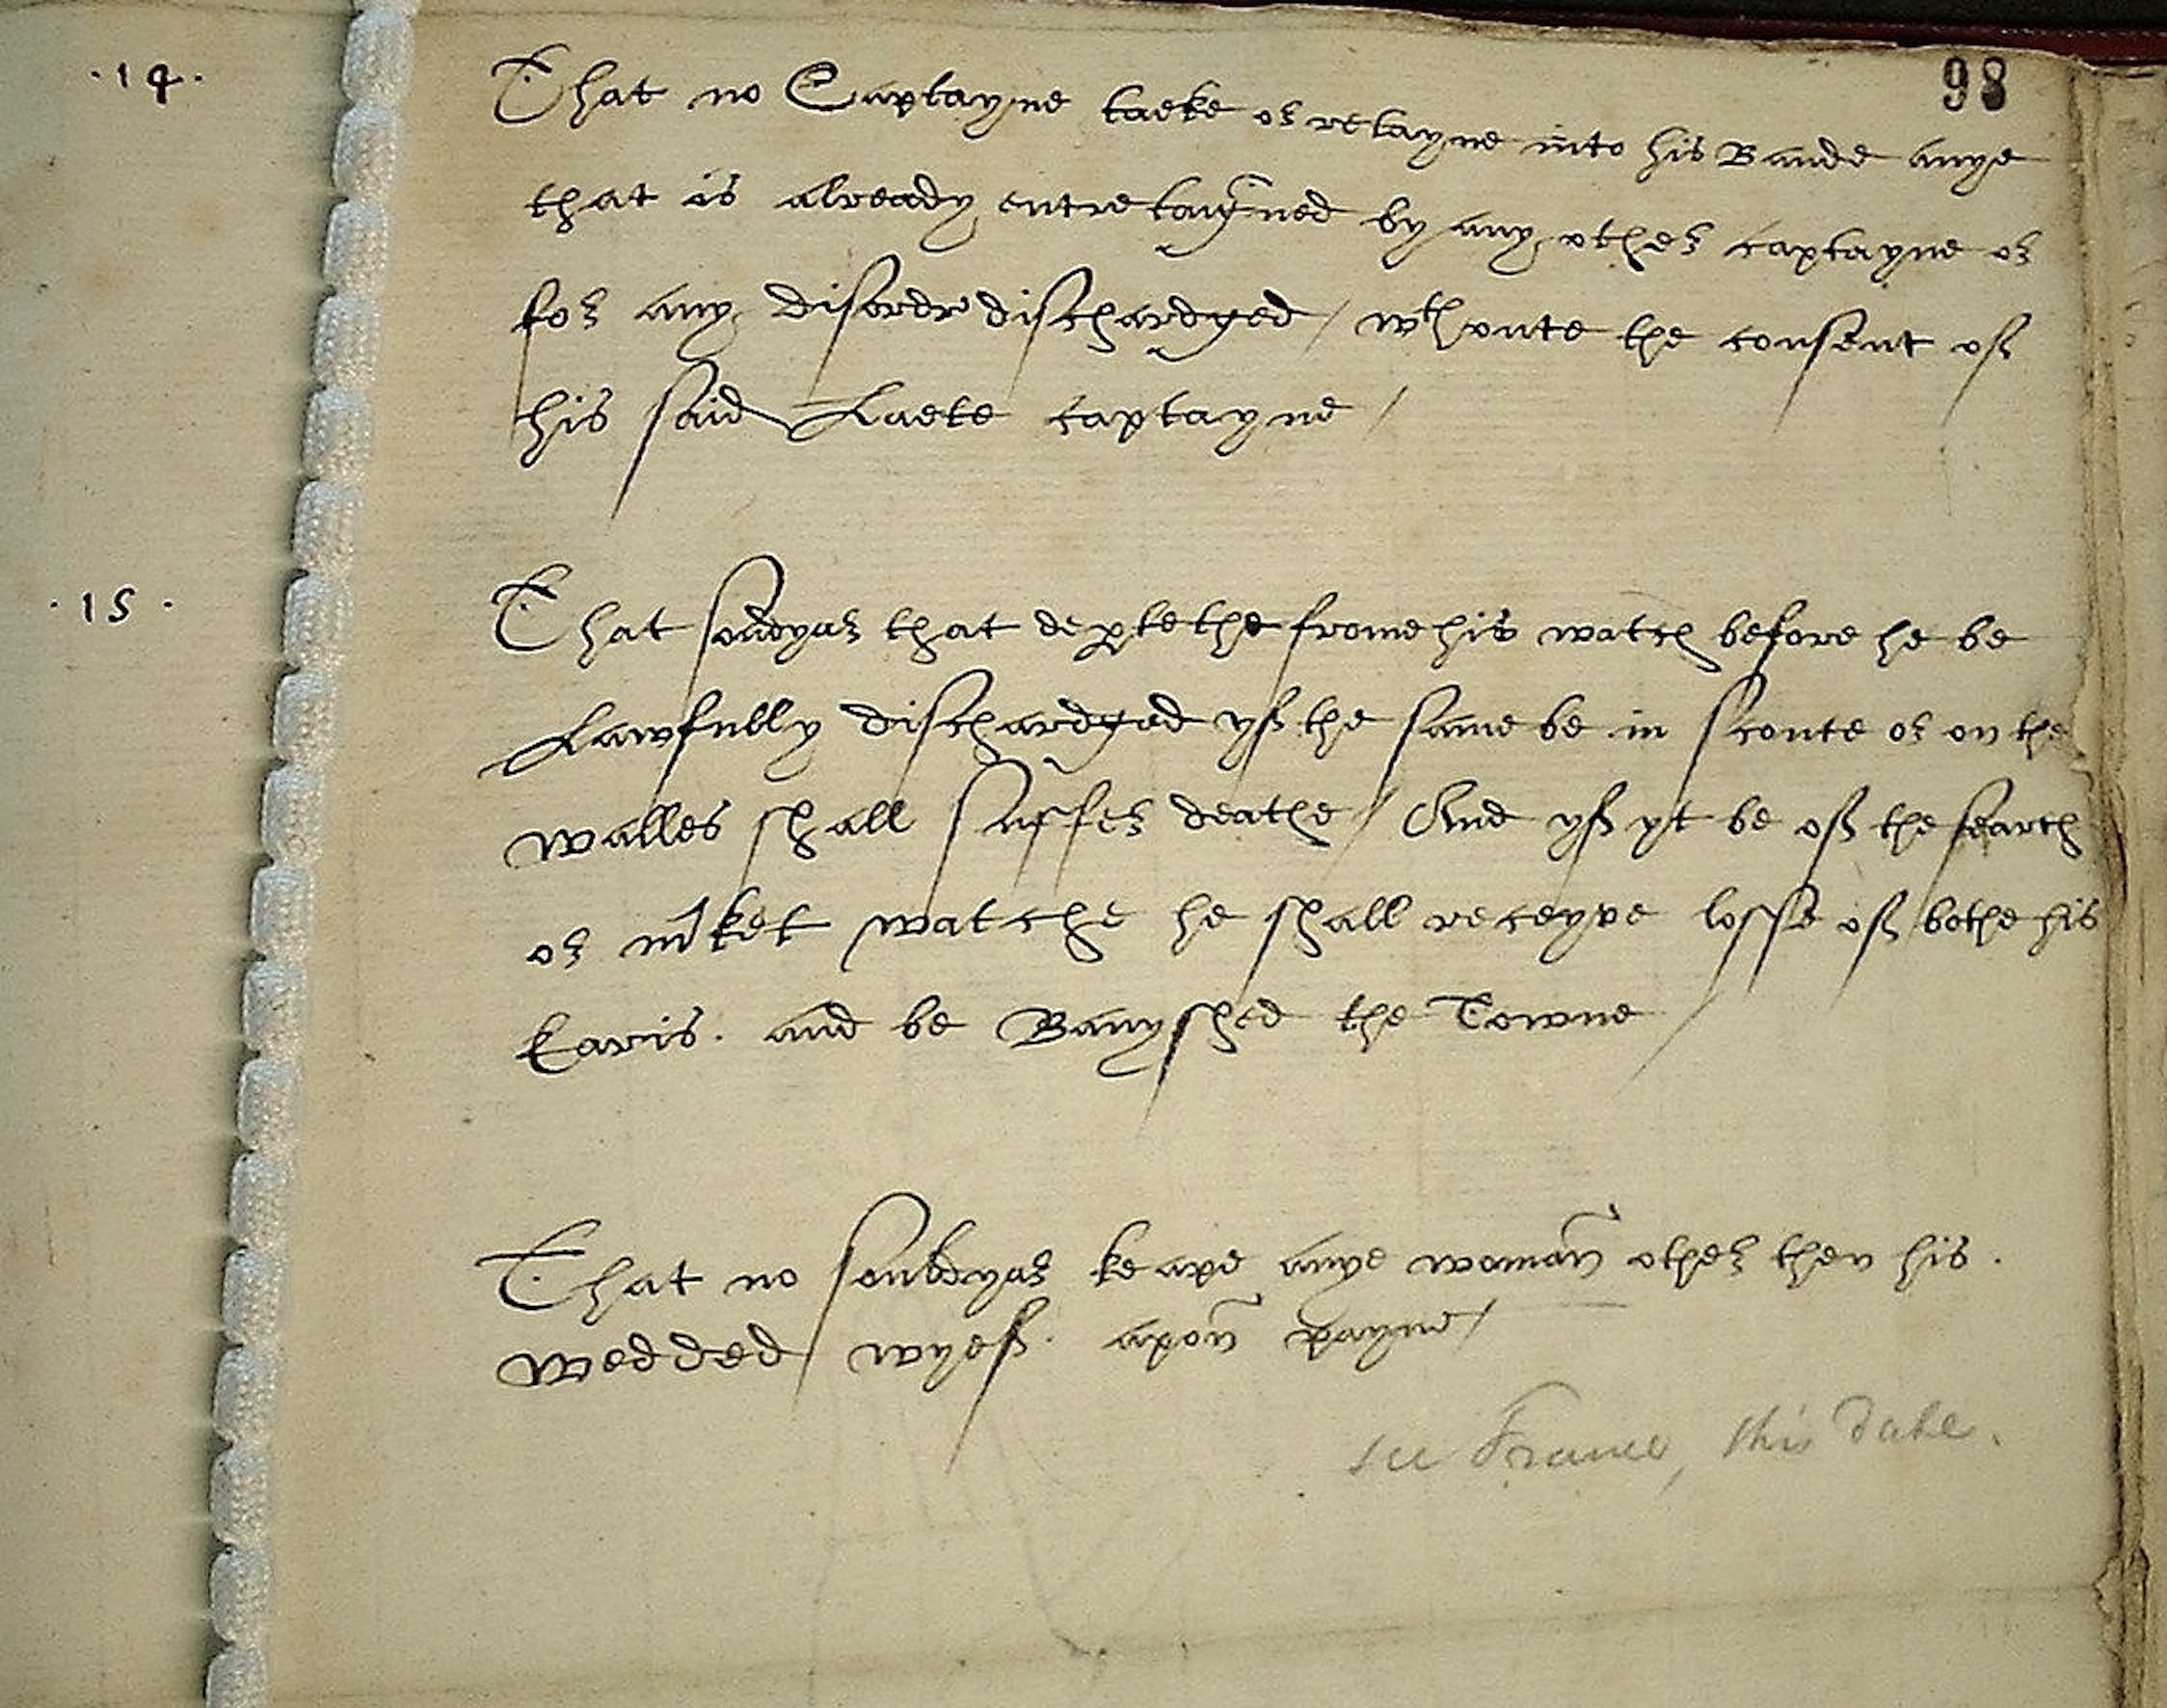 98
.14. That no Captayne taeke or retayne into his Bande anye
that is already entretaigned by any other captayne or
for any disordr dischardged / wthoute the consent off
his said Laete captayne /
.15. That souldyar that deptethe frome his watch before he be
Lawfully dischardged yff the same be in Scoute or on the
walles shall suffer deathe / And yff yt be off the search
or mket watche he shall receyve losse off bothe his
Earis. and be Banyshed the Towne /
That no souldyar keape anye woman other then his.
wedded wyeff. apon payne /
see France, this date.